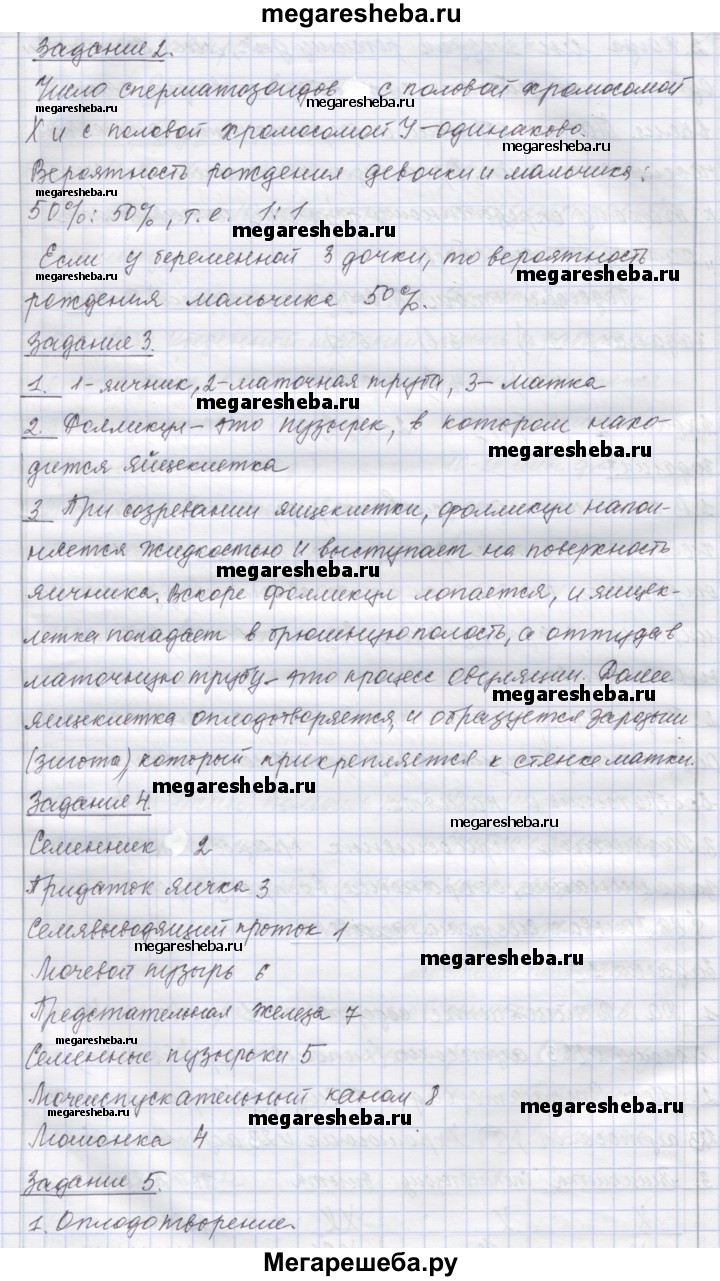 megaresheba.ru
Задание 2.
Число сперматозоидов с половой хромосомой
megaresheba.ru
megaresheba.ru
X и с половой хромосомой У-одинаково.
megaresheba.ru
Вероятность рождения девочки и мальчика:
50%:50%, т.е. 1:1
megaresheba.ru
Если у беременной 3 дочки, то вероятность
megaresheba.ru
megaresheba.ru
рождения мальчика 50%.
Задание 3.
1. 1-яичник, 2-маточная труба, 3-матка
megaresheba.ru
2. Фолликул-это пузырек, в котором нахо-
megaresheba.ru
дится яйцеклетка
3 При созревании яйцеклетки, фолликул напол-
няется жидкостью и выступает на поверхность
megaresheba.ru
яичника. Вскоре фолликул лопается, и яйцек-
летка попадает в брюшную полость, а оттуда в
маточную трубу-это процесс овуляции. Далее
megaresheba.ru
яйцеклетка оплодотворяется, и образуется зародыш
(зигота), который прикрепляется к стенке матки.
megaresheba.ru
Задания 4.
megaresheba.ru
Семенник 2
Придаток яичка 3
Семявыводящий проток 1
megaresheba.ru
megaresheba.ru
Мочевой пузырь 6
Предстательная железа 7
megaresheba.ru
Семенные пузырьки 5
Мочеиспускательный канал 8
megaresheba.ru
megaresheba.ru
megaresheba.ru
Мошонка 4
Задание 5.
megaresheba.ru
1. Оплодотворение.
Мегарешеба.ру